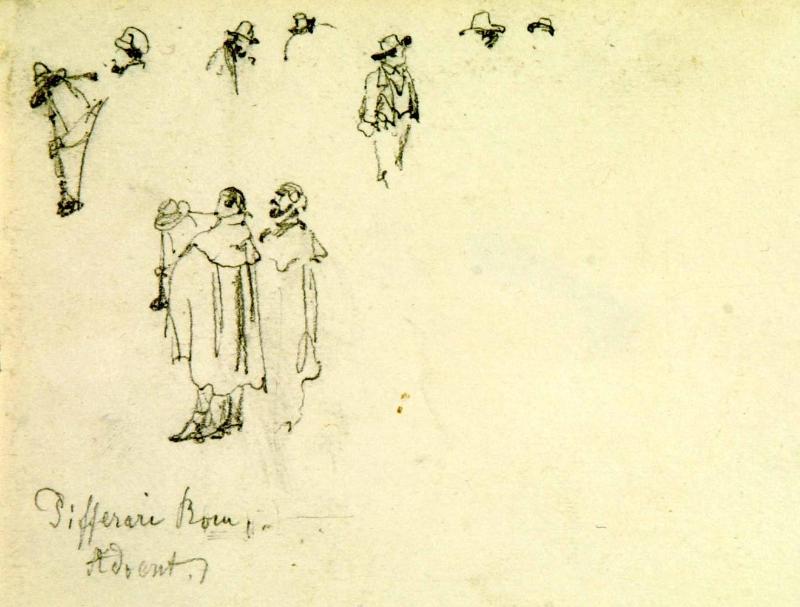 Pifferari Rom,
Advent.